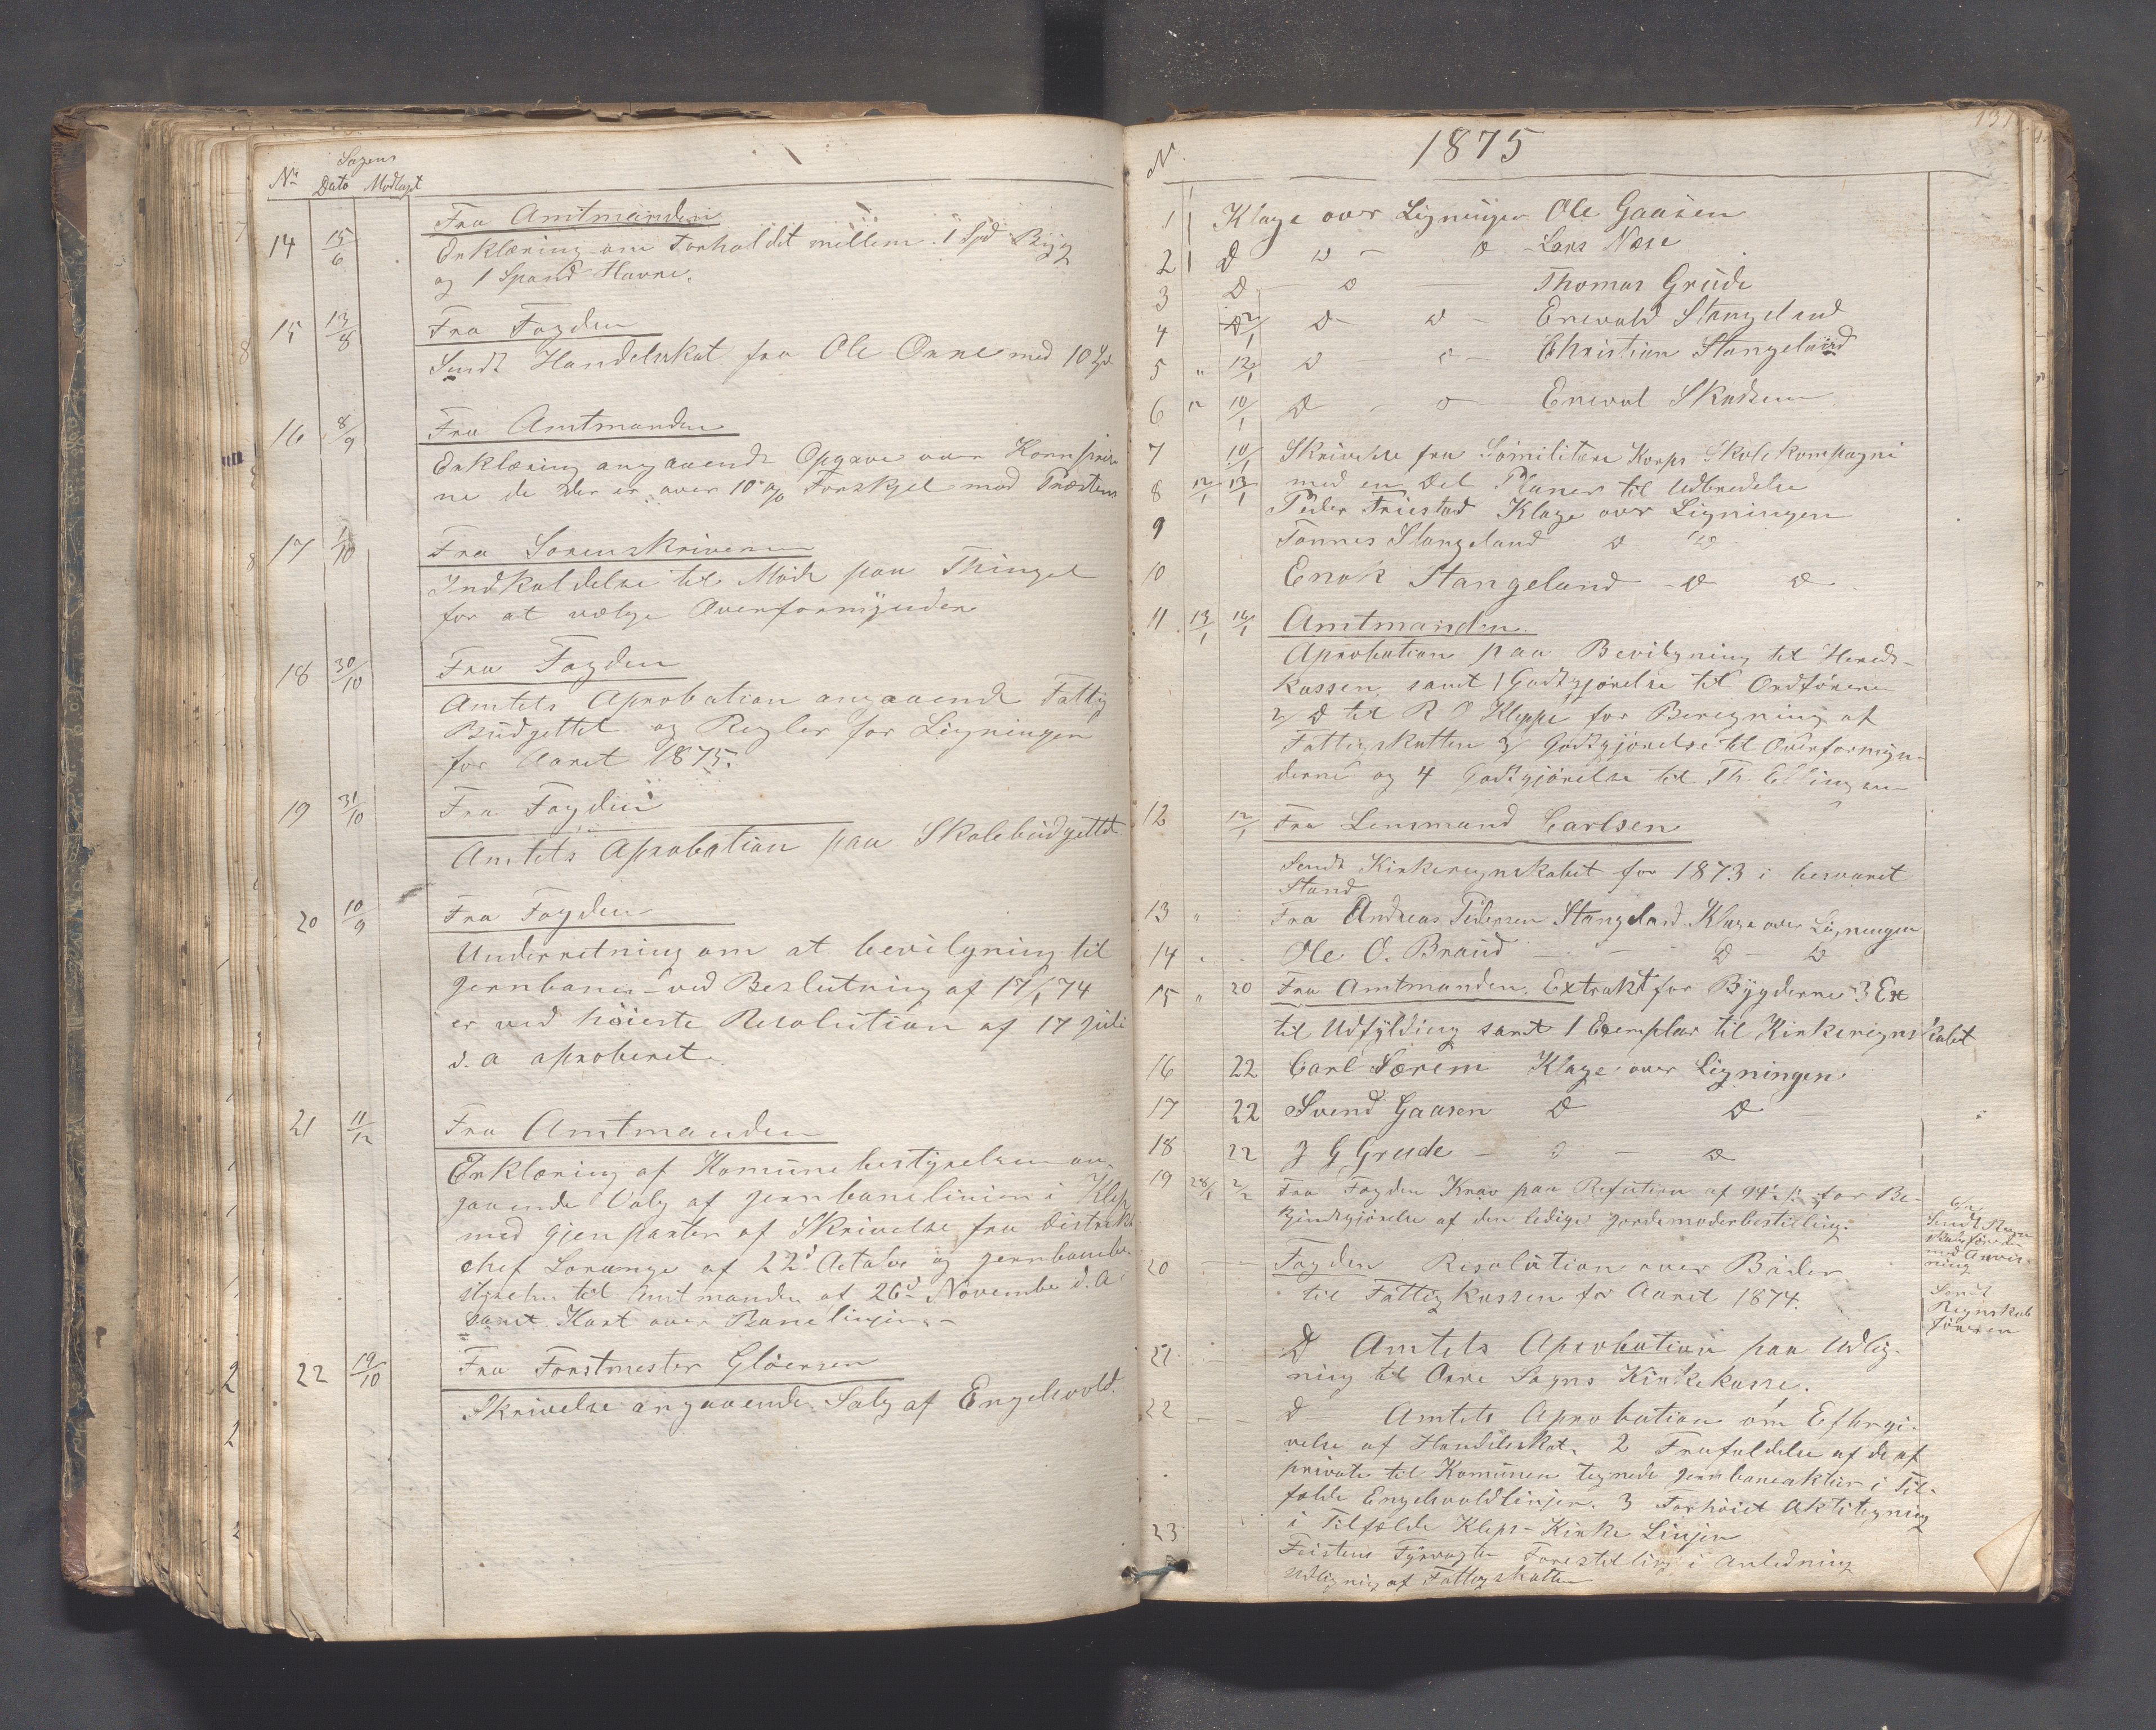 No Sagens
Dato Modtaget
Fra Amtmanden
14 15/6 Erklæring om Forholdet mellem 1 Spd Byg
og 1 Spand Havre.
15 13/8 Fra Fogden
Sendt Handelsskat fra Ole Orre med 10 Spd
16 8/9 Fra Amtmanden
Erklæring angaaende Opgave over Kornprise
ne de der er over 10 % Forskjel med Præstens
17 1/10 Fra Sorenskriveren
Indkaldelse til Møde paa Thinget
for at vælge Overformynder
18 30/10 Fra Fogden
Amtets Aprobation angaaende Fattig
Budgettet og Regler for Ligningen
for Aaret 1875.
19 31/10 Fra Fogden
Amtets Aprobation paa Skolebudgettet
20 10/9 Fra Fogden
Underretning om at bevilgning til
Jernbanen ved Beslutning af 17/1 74
er ved høieste Resolution af 17 Juli
d. a aproberet.
21 11/12 Fra Amtmanden
Erklæring af Komunebestyrelsen an-
gaaende Valg af Jernbanelinien i Klep
med Gjenparter af Skrivelse fra Distrikts
chef Lorange af 22d Octobe og Jernbanebe-
styrelsen til Amtmanden af 26d Novembe d. A
samt Kart over Banelinjen.-
22 19/10 Fra Forstmester Gløersen
Skrivelse angaaende Salg af Engelsvold.
No 1875 131
1 Klage over Ligningen Ole Gaasen
2 D D - D - Lars Næse
3 D - D - Thomas Grude
4 12/1 D D - Enevald Stangeland
5 " 12/1 D D - Christian Stangeland
6 12 10/1 D - D - Eneval Skadsem
7 10/1 Skrivelse fra Sømilitære Korps Skolekompagni
8 12/1 13/1 med en Del Planer til Udbredelse
Peder Friestad Klage over Ligningen
9 Tønnes Stangeland D D
10 Enok Stangeland - D D
11 13/1 16/1 Amtmanden.
Aprobation paa Bevilgning til Hereds-
kassen. samt 1 Godtgjørelse til Ordføreren
2/ D til R O Kleppe for Beregning af
Fattigskatten 3/ Godtgjørelse til Overformyn-
derne og 4 Godtgjørelse til Th. Ellingsen
12 12/1 Fra Lensmand Carlsen
Sendt Kirkeregnskabet for 1873 i besvaret
Stand
13 " Fra Andreas Pedersen Stangeland Klage over Ligningen
14 . . Ole O. Braud - - D - D
15 " 20 Fra Amtmanden. Extrakt for Bygderne 3 Ex
til Udfylding samt 1 Exemplar til Kirkeregnskabet
16 22 Carl Særem Klage over Ligningen
17 22 Svend Gaasen D D
18 22 J G Grude - D - D
19 28/1 2/2 Fra Fogden Krav paa Refution af 94 1/2 ß for Be-
kjendtgjørelse af den ledige Jordemoderbestilling.
6/2 Sendt Regn
skabsføreren
med Anvis-
ning
20 Fogden Resolution over Bøder
til Fattigkassen for Aaret 1874.
Sendt
Regnskab
føreren
21 D Amtets Aprobation paa Udlig-
ning til Orre Sogns Kirkekasse.
22 D Amtets Aprobation om Eftergi-
velse af Handelsskat. 2 Frafaldelse af de af
private til Komunen tegnede Jernbaneaktier i Til-
fælde Engelsvoldlinjen. 3 Forhøiet Aktietegning
i Tilfælde Klep-Kirke Linjen
23 Feistens Fyrvogter Forestilling i Anledning
Udligning af Fattigskatten